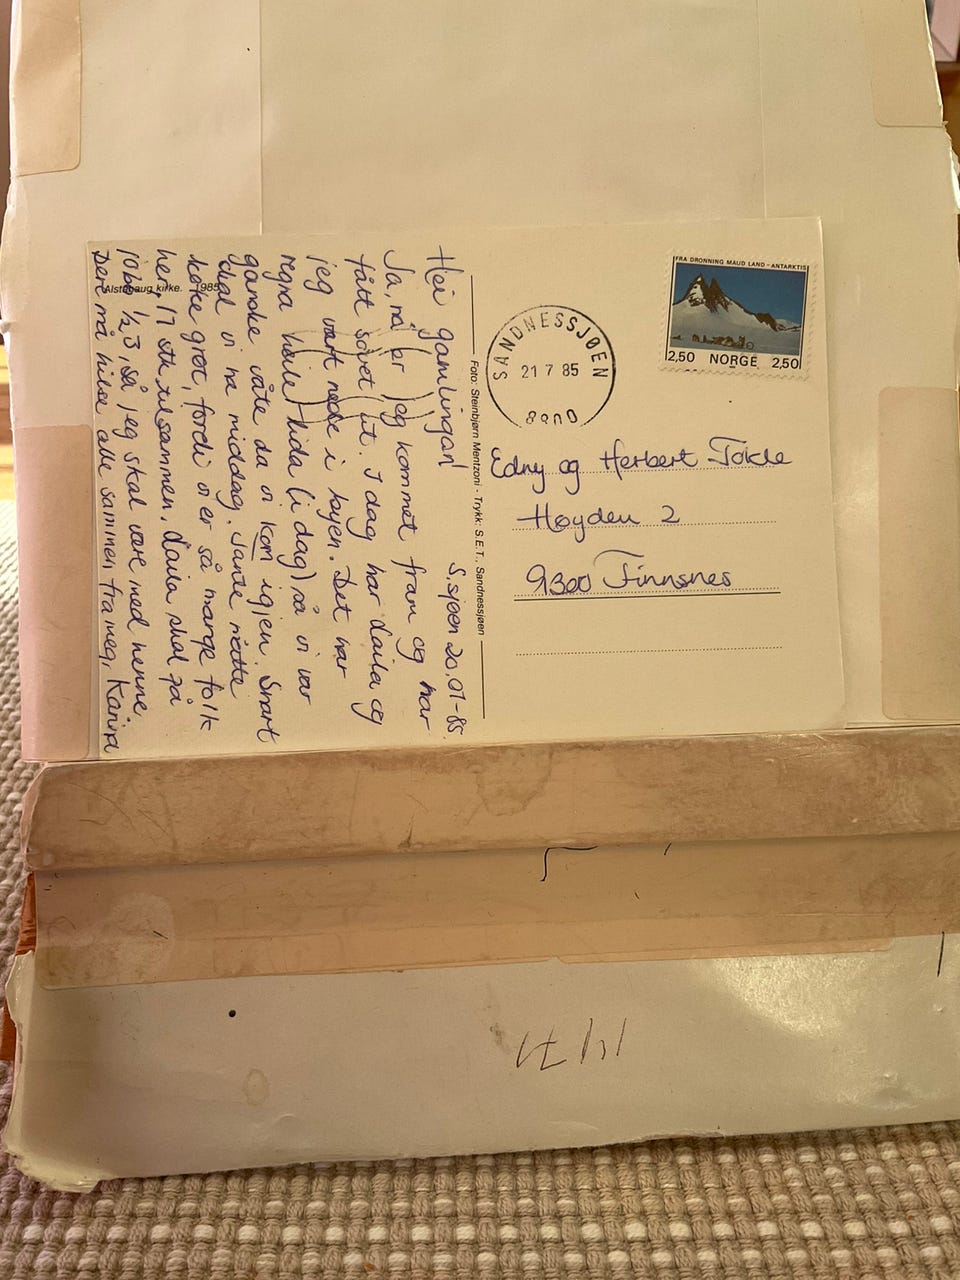 S.sjøen 20.07-85.
Hei gamlingan!
Ja, nå er jeg kommet fram og har
fått sovet ut. I dag har Laila og
jeg vært nede i byen. Det har
regna hele tida (i dag) så vi var
ganske våte da vi kom igjen. Snart
skal vi ha middag. Tante måtte
koke grøt, fordi vi er så mange folk
her, 17 stk tilsammen. Laila skal på
jobb 1/2 3, så jeg skal være med henne.
Dere må hilse alle sammen fra meg. Karina
Alstahaug kirke. 1985
Foto: Steinbjørn Mentzoni - Trykk: S.E.T., Sandnessjøen
SANDNESSJØEN
21 7 85
8800
FRA DRONNING MAUD LAND - ANTARKTIS
2,50 NORGE 2,50
Edny og Herbert Tokle
Høyden 2
9300 Finnsnes